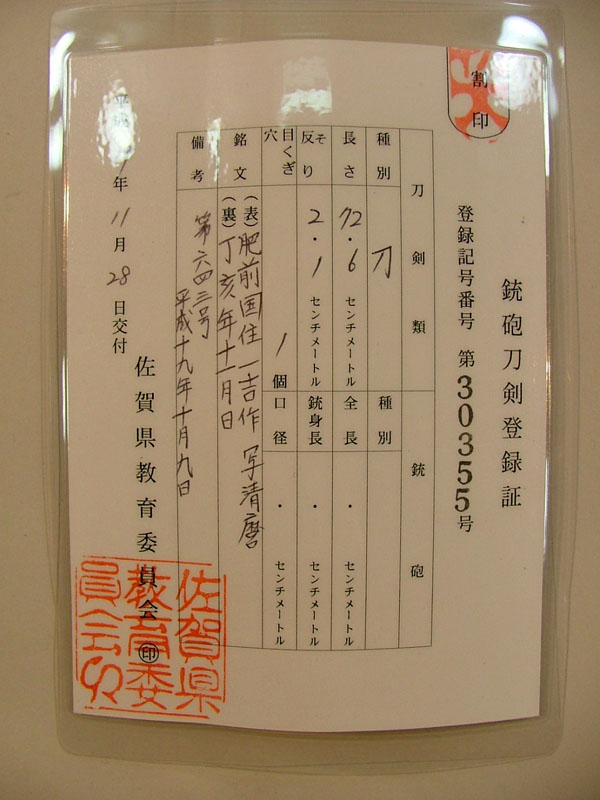 割印
銃砲刀剣登録証
登録記号番号 第30355号
刀剣類
種別 刀
長さ 72.6 センチメートル
反り そり 2.1 センチメートル
目くぎ穴 1個
銃砲
種別
全長 ・ センチメートル
銃身長 ・ センチメートル
口径 ・ センチメートル
銘文 (表)肥前国住一吉作 写清麿
(裏)丁亥年十一月日
備考 第六四三号
平成十九年十月九日
年11月28日交付
佐賀県教育委員会 印
佐賀県
教育委
員会印